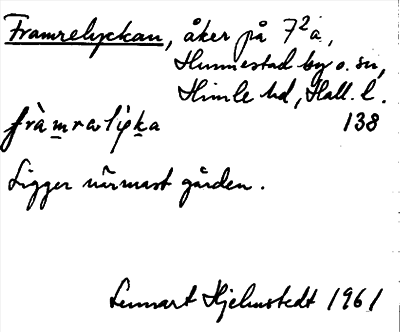 Framrelyckan, åker på 7²a,
Hunnestad by o. sn,
Himle hd, Hall. l.
138
Ligger närmast gården.
Lennart Hjelmstedt 1961